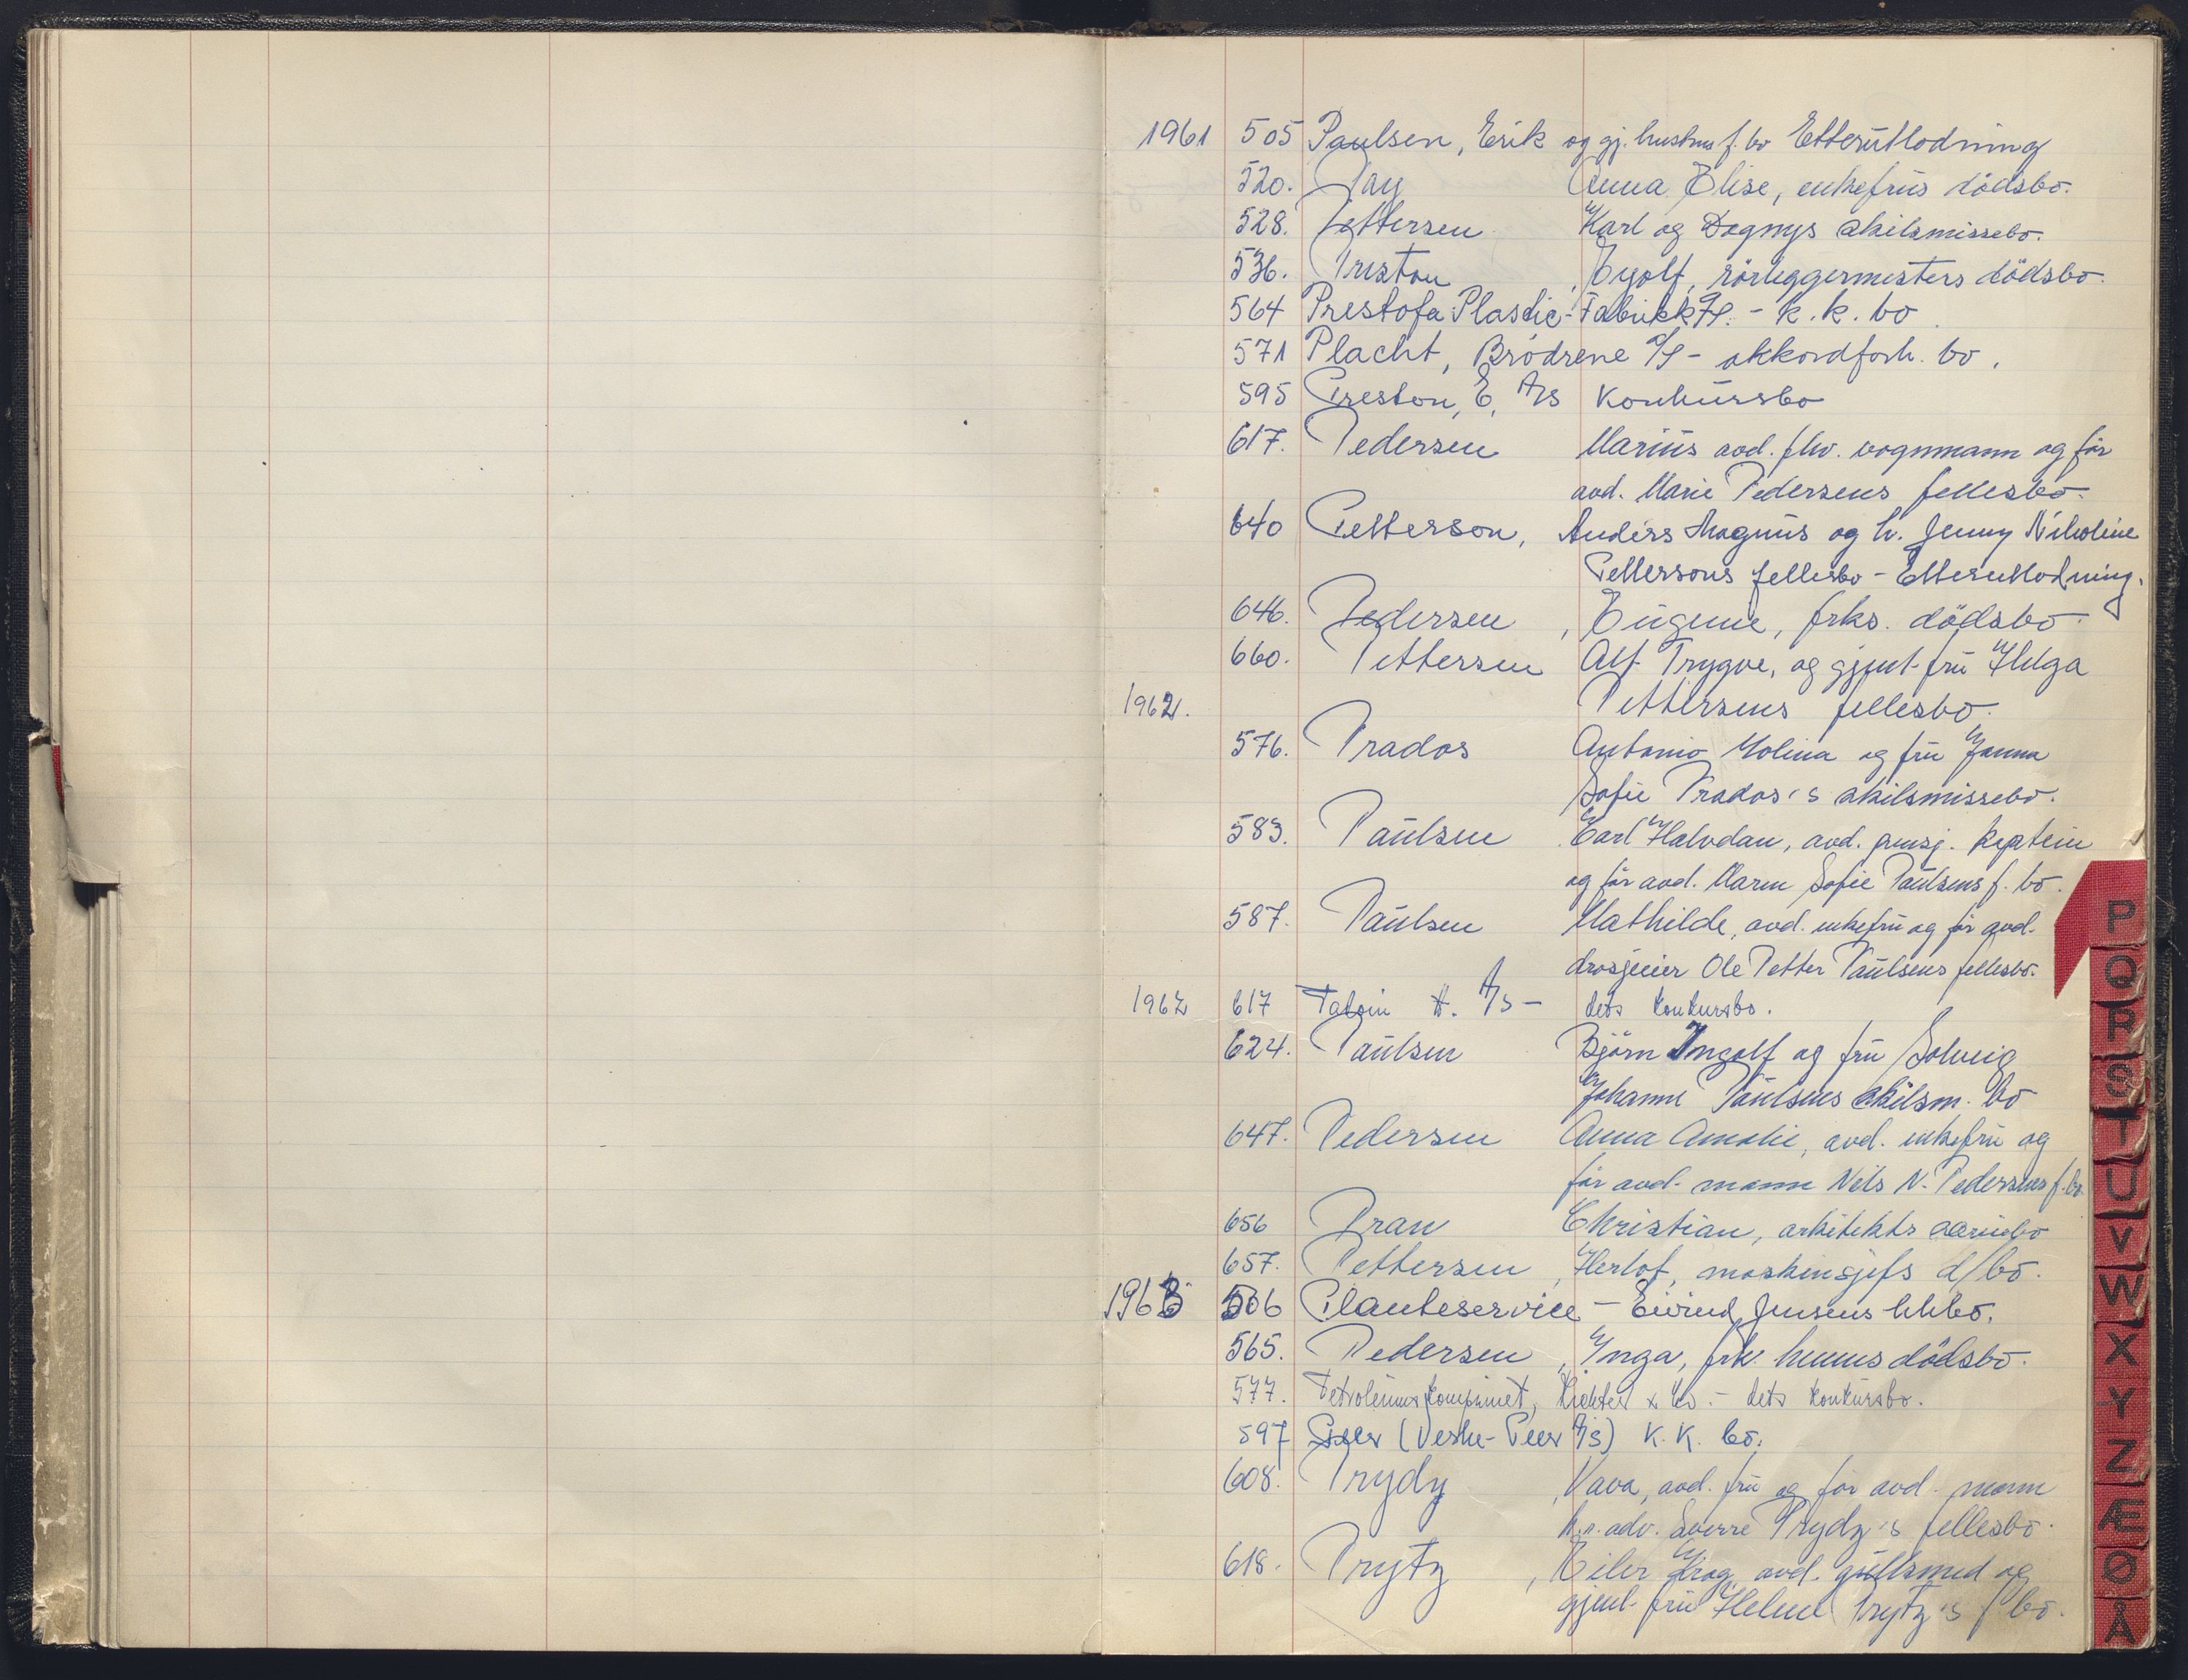 1961 505 Paulsen, Erik og gj. hustru f. bo Etterutlodning
520. Pay Anna Elise, enkefrus dödsbo.
528. Pettersen Karl og Dagnys skilsmissebo.
536. Preston, Eyolf, rörleggermesters dödsbo.
564 Prestofa Plastic-Fabrikk A/S. - k.k. bo
571 Placht, Brödrene A/S - akkordforh. bo.
595 Preston, E. A/S Konkursbo
617. Pedersen Marius avd. fhv. vognmann og för
avd. Marie Pedersens fellesbo.
640 Petterson, Anders Magnus og h. Jenny Nikoline
Pettersons fellesbo - Etterutlodning.
646. Pedersen, Eugenie, frks. dödsbo.
660. Pettersen Alf Trygve, og gjenl. fru Helga
1962. Pettersens fellesbo.
576. Prados Antonio Molina og fru Janna
Sofie Prados's skilsmissebo.
583. Paulsen Carl Halvdan, avd. pensj. kaptein
og för avd. Maren Sofie Paulsens f. bo.
587. Paulsen Mathilde, avd. enkefru og för avd.
drosjeeier Ole Petter Paulsens fellesbo.
1962 617 H. A/S - dets konkursbo.
624. Paulsen Björn Ingolf og fru Solveig
Johanne Paulsens skilsm. bo
647. Pedersen Anna Amalie, avd. enkefru og
för avd. mann Nils N. Pedersens f. bo.
656 Pran Christian, arkitekts bo
657. Pettersen, Herlof, maskinsjefs d/bo.
1963 506 Planteservice - Eivind Jensens bo.
565. Pedersen, Inga, frk. hennes dödsbo.
577. Petroleumskompaniet, Richter & Co. - dets konkursbo.
597 Peer (Veske-Peer A/S) K.K. bo.
608. Prydz, Vava, avd. fru og för avd. mann
h.r.adv. Sverre Prydz's fellesbo.
618. Prytz, Eiler Krog avd. gullsmed og
gjenl. fru Helene Prytz's f bo.
P
Q
R
S
T
U
V
W
X
Y
Z
Æ
Ø
Å